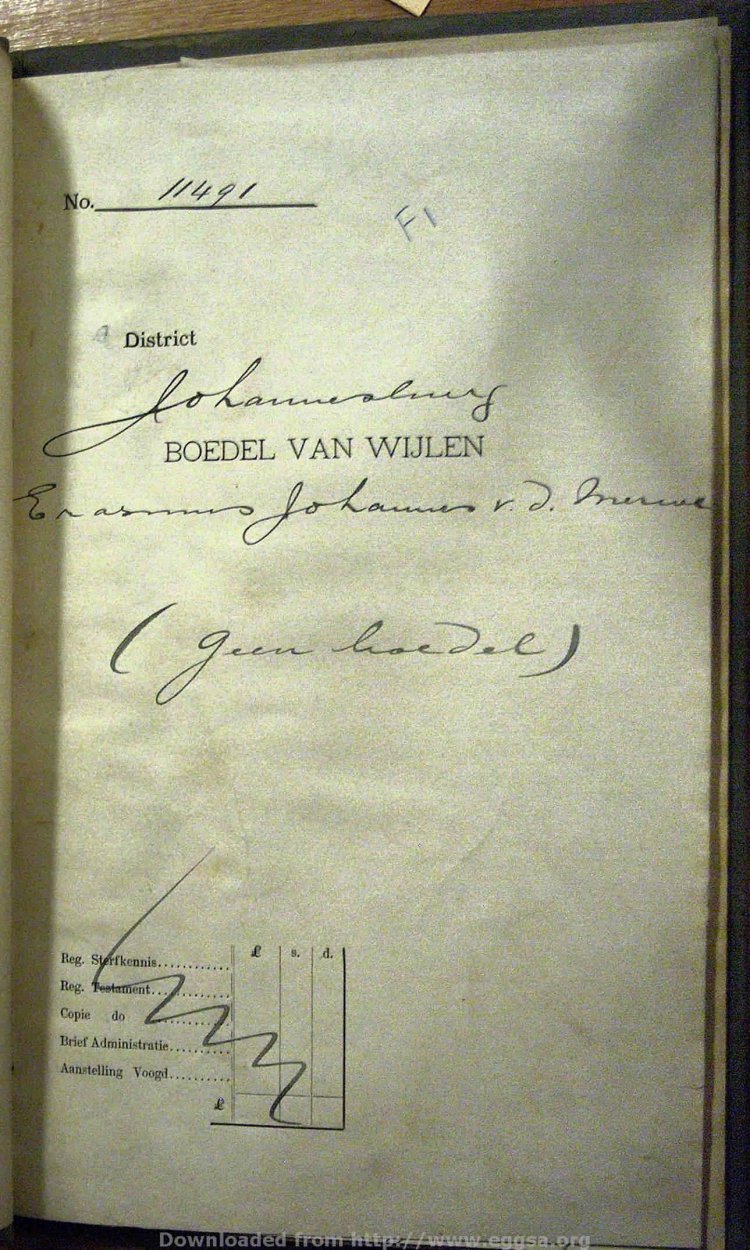 No. 11491
F1
District
Johannesburg
BOEDEL VAN WIJLEN
Erasmus Johannes v. d. Merwe
(Geen boedel)
£ s. d.
Reg. Sterfkennis............
Reg. Testament............
Copie do ............
Brief Administratie............
Aanstelling Voogd............
£
Downloaded from http://www.eggsa.org